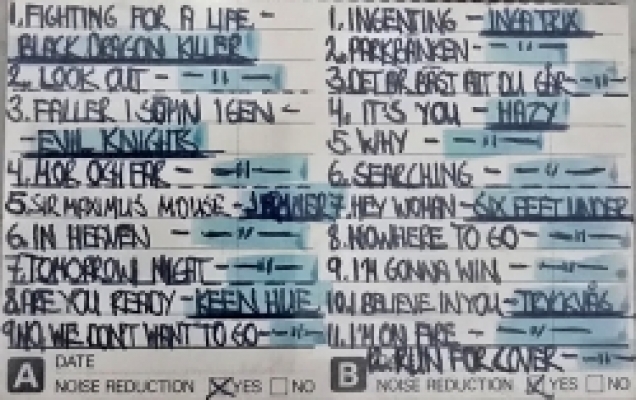 1. FIGHTING FOR A LIFE. -
BLACK DRAGON KILLER
2. LOOK OUT - - 11 -
3. FALLER I SÖMN IGEN -
- EVIL KNIGHTS
4. MOR OCH FAR - - 11 -
5. SIR MAXIMUS MOUSE -
6. IN HEAVEN - 11 -
7. TOMORROW NIGHT - - 11 -
8. ARE YOU READY - KEEN HUE
9. NO, WE DONT WANT TO GO - - 11 -
A DATE
NOISE REDUCTION YES NO
1. INGENTING - INGA TRIX
2. PARKBANKEN - - 11 -
3. DET ÄR BÄST ATT DU GÅR - - 11 -
4. IT'S YOU - HAZY
5. WHY - - 11 -
6. SEARCHING - - 11 -
7. HEY WOMAN - SIX FEET UNDER
8. NOWHERE TO GO - - 11 -
9. I'M GONNA WIN - - 11 -
10. I BELIEVE IN YOU - TRYCKVÅG
11. I'M ON FIRE - - 11 -
12. RUN FOR COVER - - 11 -
B NOISE REDUCTION YES NO